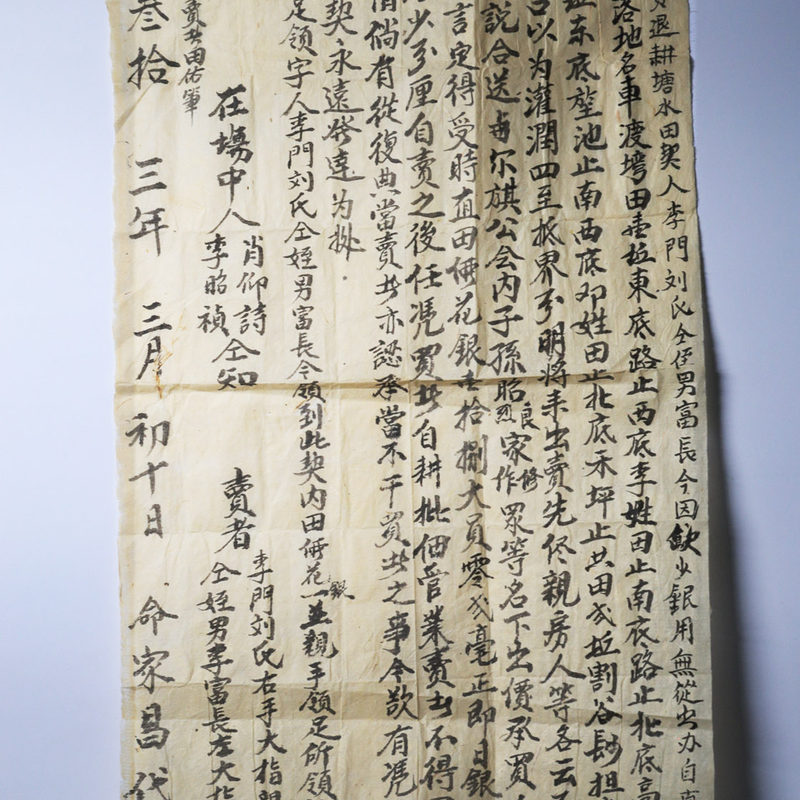 退耕塘水田契人李門刘氏仝侄男富長今因歉少銀用無從出办自
落地名車渡塆田壱坵東底路止西底李姓田止南底路止北底高
坵东底塋池止南西底邓姓田止北底禾坪止共田弍坵割谷 担
以为灌潤四至抵界分明將来出賣先侭親房人等各云
說合送与尔旗公会内子孫昭良烈家修作眾等名下出價承買
言定得受時直田價花銀壱拾捌大員零弍毫正即日銀
少分厘自賣之後任凴買者自耕批佃管業賣者不得
倘有從復典當賣者亦認承當不干買者之事今欲有凴
契永遠發達为据
足領字人李門刘氏仝姪男富長今領到此契内田價花銀一並親手領足所領
賣者田佑筆
在塲中人 肖仰詩 李昭禎 仝知
賣者 李門刘氏右手大指 仝姪男李富長左大指
叁拾三年三月初十日 命家昌代